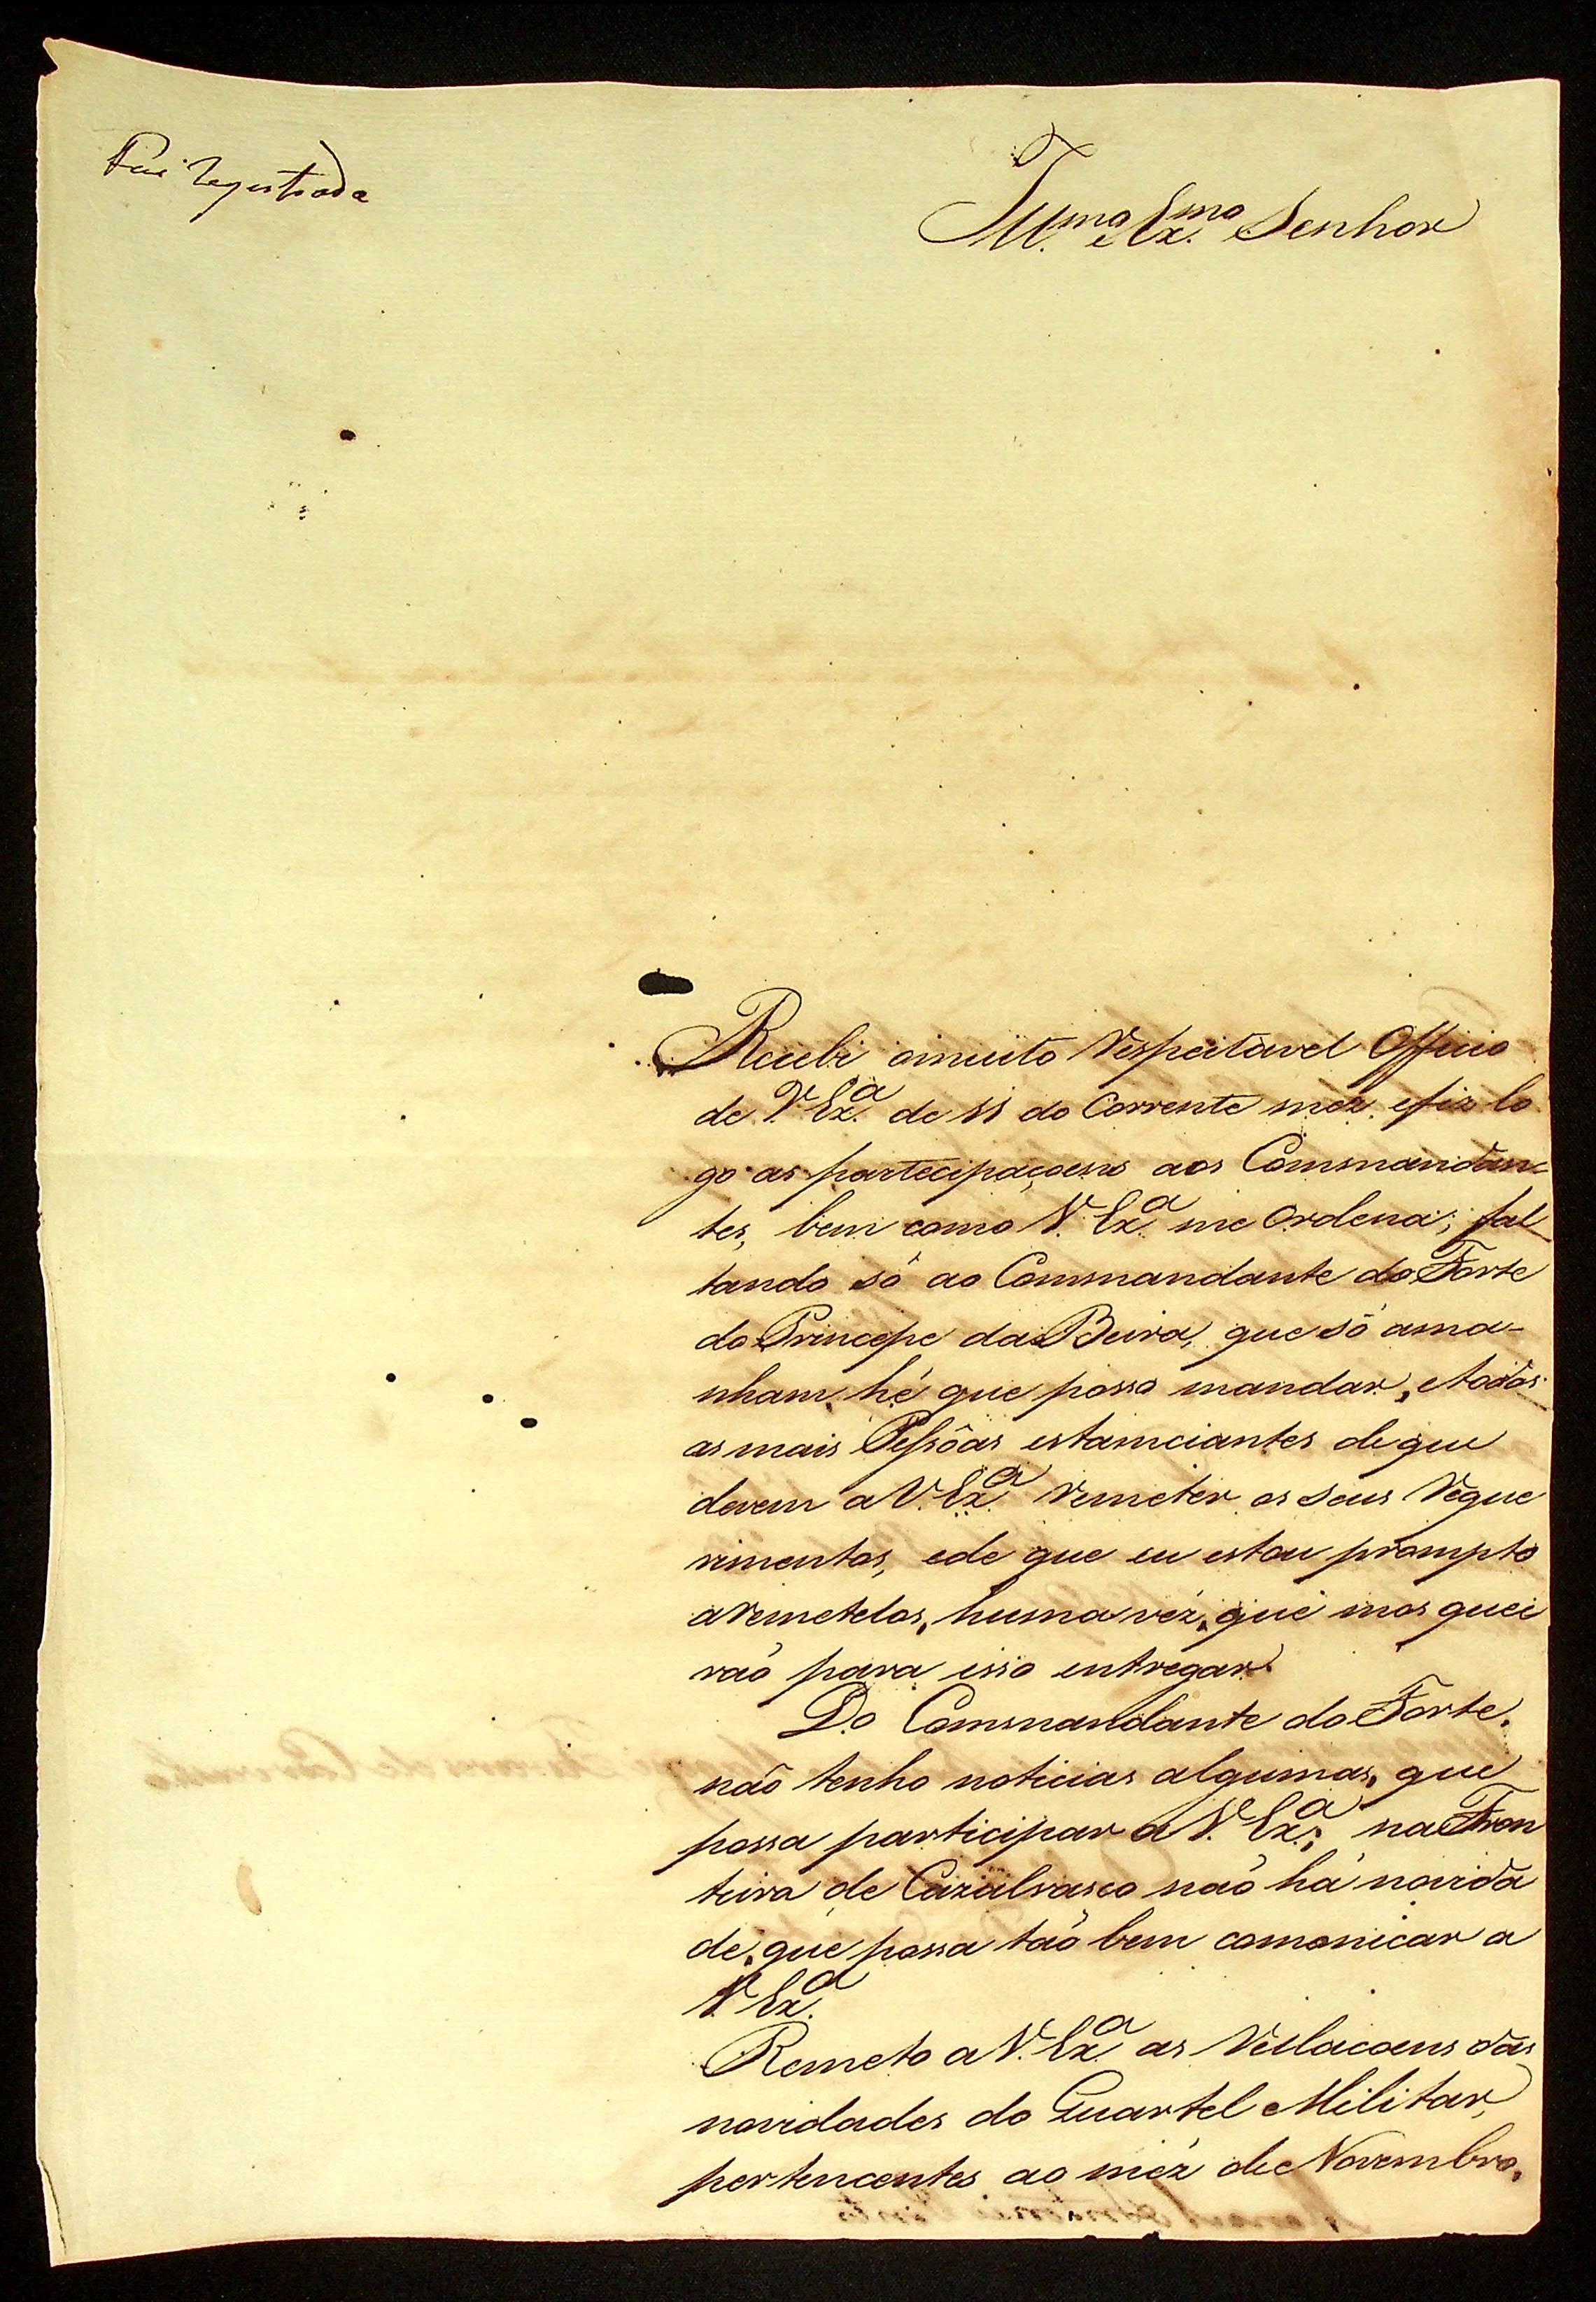 Foi Registrada
Ill.mo e Ex.mo Senhor
Recebi omuito Respeitavel Officio
de V. Ex.a de 11 do Corrente mez, efiz lo
go as partecipaçoens aos Commandan=
tes, bem como V. Ex.a me Ordena; fal
tando só ao Commandante do Forte
do Princepe da Beira, que só ama-
nham, hé que posso mandar, etodas
as mais Pessôas estamciantes deque
devem a V. Ex.a Remeter os seus Reque
rimentos, ede que eu estou prompto
aRemetelos, huma véz, que mos quei
raõ para isso entregar.
Do Commandante do Forte,
naõ tenho noticias algumas, que
possa participar a V. Ex.a; na Fron
teira de Cazalvasco naõ há novida
de, que possa taõ bem comonicar a
V. Ex.a
Remeto a V. Ex.a as Rellacoens das
novidades do Quartel Militar,
pertencentes ao méz de Novembro,